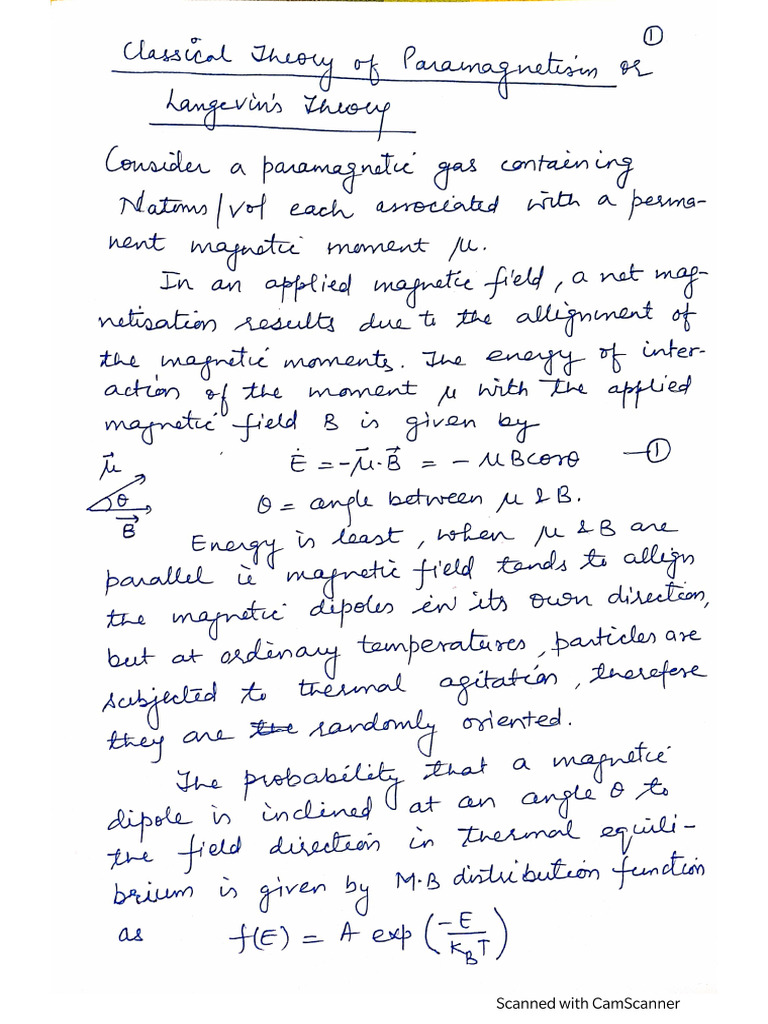 ①
Classical Theory of Paramagnetism or
Langevin's Theory
Consider a paramagnetic gas containing
N atoms/vol each associated with a perma-
nent magnetic moment μ.
In an applied magnetic field, a net mag-
netisation results due to the allignment of
the magnetic moments. The energy of inter-
action of the moment μ with the applied
magnetic field B is given by
E = -μ⃗.B⃗ = - μBcosθ —①
μ⃗
θ
B⃗
θ = angle between μ & B.
Energy is least, when μ & B are
parallel ie magnetic field tends to allign
the magnetic dipoles in its own direction,
but at ordinary temperatures, particles are
subjected to thermal agitation, therefore
they are the randomly oriented.
The probability that a magnetic
dipole is inclined at an angle θ to
the field direction in thermal equili-
brium is given by M.B distribution function
as f(E) = A exp (-E/K_BT)
Scanned with CamScanner